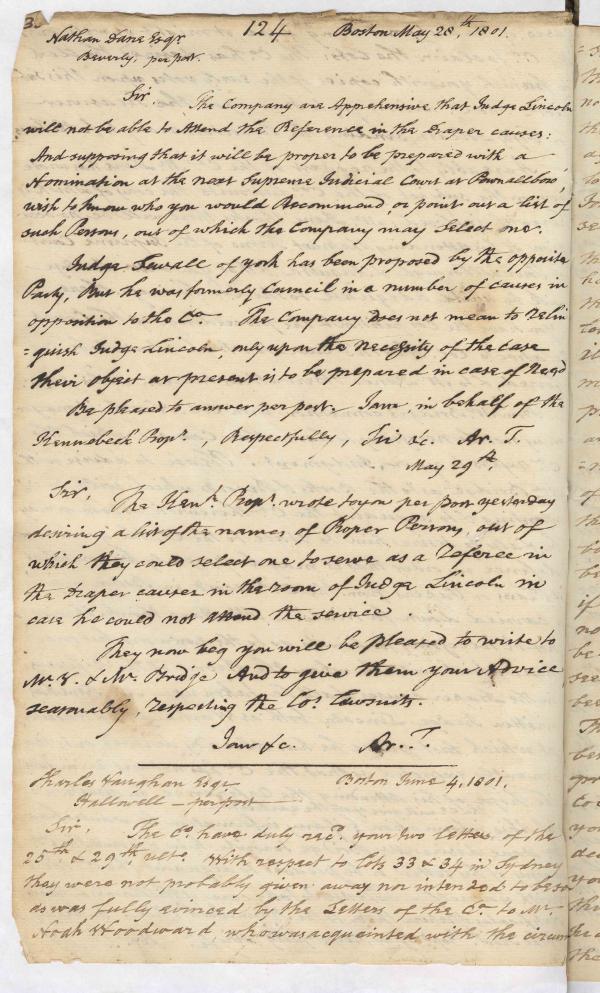 124
Nathan Dane Esqr
Boston May 28th, 1801.
Beverly, per post.
Sir. The Company are Apprehensive that Judge Lincoln
will not be able to Attend the Reference in the Draper causes;
And supposing that it will be proper to be prepared with a
Nomination at the next Supreme Judicial Court at Pownallboro',
wish to know who you would Recommend, or point out a list of
such Persons, out of which the Company may Select one.
Judge Sewall of york has been proposed by the opposite
Party, But he was formerly Council in a number of causes in
opposition to the Co. The Company Does not mean to Relin
=quish Judge Lincoln, only upon the necessity of the case
their object at present is to be prepared in case of Need
Be pleased to answer per post. I am, in behalf of the
Kennebeck Propr., Respectfully, Sir &c. Ar. T.
May 29th.
Sir, The Kenk. Propr. wrote to you per post yesterday
desiring a list of the names of Proper Persons, out of
which they could select one to serve as a Referee in
the Draper causes in the room of Judge Lincoln in
case he could not attend the service.
They now beg you will be pleased to write to
Mr. V. & Mr. Bridge And to give them your Advice
seasonably, respecting the Co's Lawsuits.
I am &c. Ar. T.
Charles Vaughan Esqr
Boston June 4, 1801.
Hallowell - per post
Sir, The Co. have duly recd. your two letters of the
25th & 29th, ulto. With respect to lots 33 & 34 in Sydney
they were not probably given away nor intended to be so
as was fully evinced by the Letters of the Co. to Mr.
Noah Woodward who was acquainted with the circum